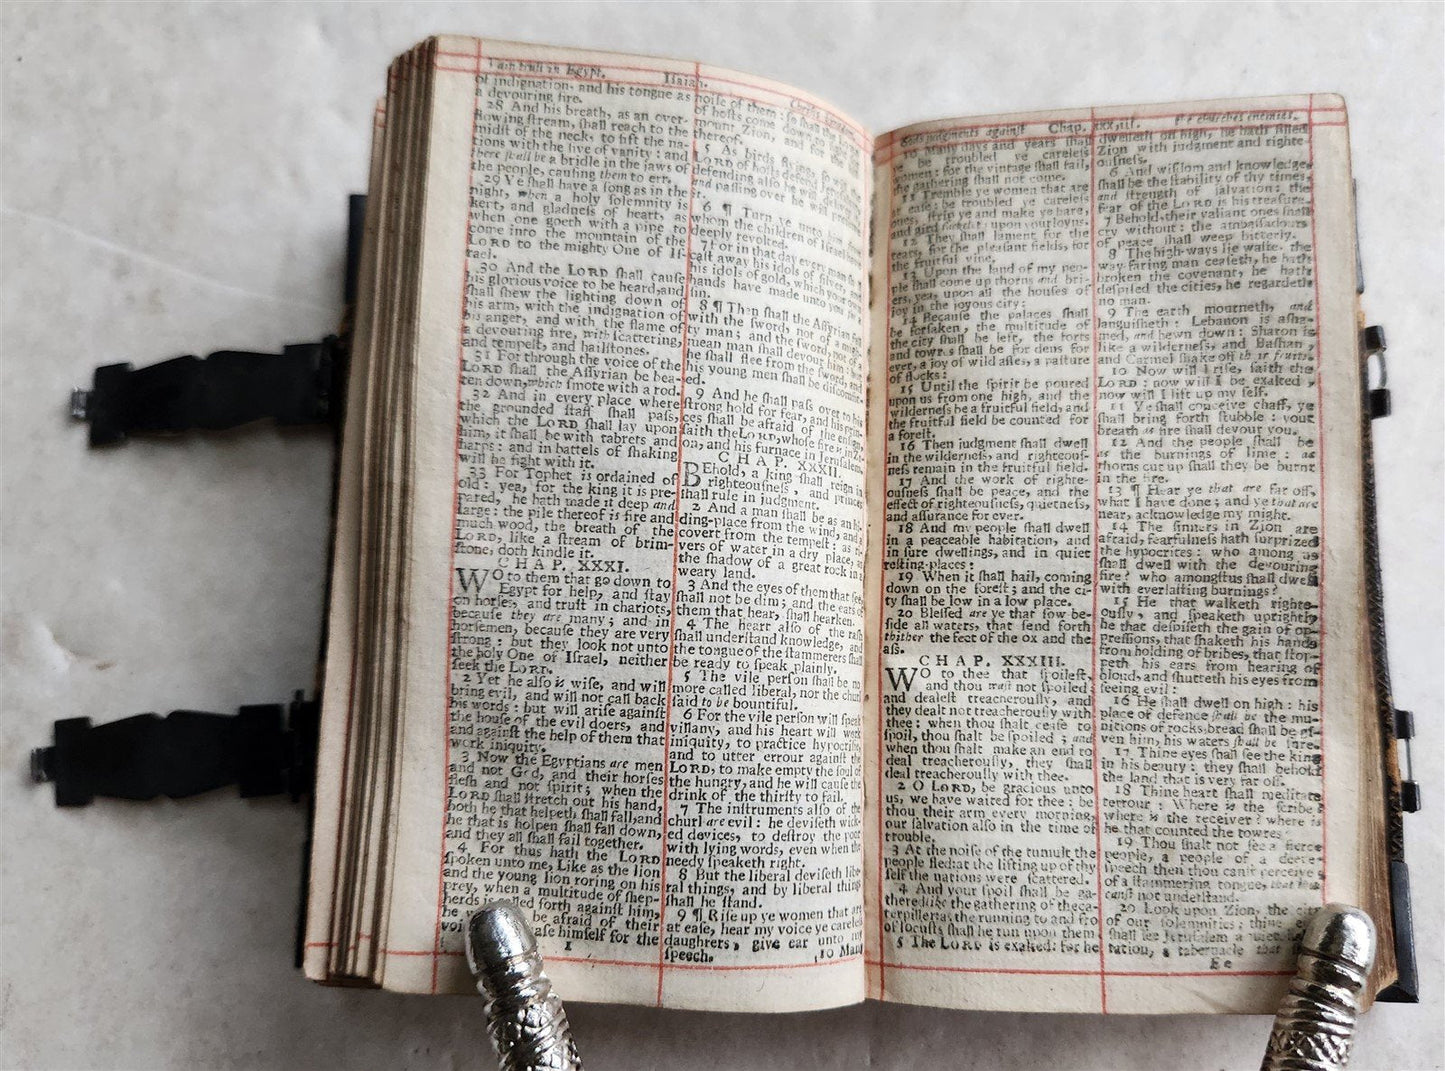 Vain trust in Egypt. Isaiah.
of indignation, and his tongue as
a devouring fire.
28 And his breath, as an over-
flowing ſtream, ſhall reach to the
midſt of the neck, to ſift the na-
tions with the ſive of vanity: and
there ſhall be a bridle in the jaws of
the people, cauſing them to err.
29 Ye ſhall have a ſong as in the
night, when a holy ſolemnity is
kept, and gladneſs of heart, as
when one goeth with a pipe to
come into the mountain of the
LORD to the mighty One of Iſ-
rael.
30 And the LORD ſhall cauſe
his glorious voice to be heard, and
ſhall ſhew the lighting down of
his arm, with the indignation of
his anger, and with the flame of
a devouring fire, with ſcattering,
and tempeſt, and hailſtones.
31 For through the voice of the
LORD ſhall the Aſſyrian be bea-
ten down, which ſmote with a rod.
32 And in every place where
the grounded ſtaff ſhall paſs,
which the LORD ſhall lay upon
him, it ſhall be with tabrets and
harps: and in battels of ſhaking
will he fight with it.
33 For Tophet is ordained of
old: yea, for the king it is pre-
pared, he hath made it deep and
large: the pile thereof is fire and
much wood, the breath of the
LORD, like a ſtream of brim-
ſtone, doth kindle it.
CHAP. XXXI.
WO to them that go down to
Egypt for help, and ſtay
on horſes, and truſt in chariots,
becauſe they are many; and in
horſemen, becauſe they are very
ſtrong: but they look not unto
the holy One of Iſrael, neither
ſeek the LORD.
2 Yet he alſo is wiſe, and will
bring evil, and will not call back
his words: but will ariſe againſt
the houſe of the evil doers, and
and againſt the help of them that
work iniquity.
3 Now the Egyptians are men
and not God, and their horſes
fleſh and not ſpirit; when the
LORD ſhall ſtretch out his hand,
both he that helpeth ſhall fall, and
he that is holpen ſhall fall down,
and they all ſhall fail together.
4 For thus hath the LORD
ſpoken unto me, Like as the lion
and the young lion roring on his
prey, when a multitude of ſhep-
herds is called forth againſt him,
he be afraid of their
voi aſe himſelf for the
I
noiſe of them: ſo ſhall the
of hoſts come down to
mount Zion, and for the
thereof.
5 As birds flying, ſo
LORD of hoſts defend
defending alſo he will
and paſſing over he will
it.
6 ¶ Turn ye unto
whom the children of Iſrael
deeply revolted.
7 For in that day every man
caſt away his idols of ſilver, and
his idols of gold, which your
hands have made unto you
ſin.
8 ¶ Then ſhall the Aſſyrian
with the ſword, not of a
ty man; and the ſword, not of a
mean man ſhall devour him:
he ſhall flee from the ſword, and
his young men ſhall be diſcomfit-
ed.
9 And he ſhall paſs over to his
ſtrong hold for fear, and his prin-
ces ſhall be afraid of the enſign,
ſaith the LORD, whoſe fire is in Zi-
on, and his furnace in Jeruſalem.
CHAP. XXXII.
BEhold, a king ſhall reign in
righteouſneſs, and princes
ſhall rule in judgment.
2 And a man ſhall be as an hi-
ding-place from the wind, and a
covert from the tempeſt: as ri-
vers of water in a dry place, as
the ſhadow of a great rock in a
weary land.
3 And the eyes of them that ſee,
ſhall not be dim; and the ears of
them that hear, ſhall hearken.
4 The heart alſo of the raſh
ſhall underſtand knowledge, and
the tongue of the ſtammerers ſhall
be ready to ſpeak plainly.
5 The vile perſon ſhall be no
more called liberal, nor the churl
ſaid to be bountiful.
6 For the vile perſon will ſpeak
villany, and his heart will work
iniquity, to practice hypocriſie,
and to utter errour againſt the
LORD, to make empty the ſoul of
the hungry, and he will cauſe the
drink of the thirſty to fail.
7 The inſtruments alſo of the
churl are evil: he deviſeth wick-
ed devices, to deſtroy the poor
with lying words, even when the
needy ſpeaketh right.
8 But the liberal deviſeth libe-
ral things, and by liberal things
ſhall he ſtand.
9 ¶ Riſe up ye women that are
at eaſe, hear my voice ye careleſs
daughters, give ear unto my
ſpeech. 10 Many
Gods judgments againſt Chap. xxxiii. the churches enemies.
10 Many days and years ſhall
ye be troubled ye careleſs
women: for the vintage ſhall fail,
the gathering ſhall not come.
11 Tremble ye women that are
at eaſe: be troubled ye careleſs
ones, ſtrip ye and make ye bare,
and gird ſackcloth upon your loyns.
12 They ſhall lament for the
tears, for the pleaſant fields, for
the fruitful vine.
13 Upon the land of my peo-
ple ſhall come up thorns and bri-
ers, yea, upon all the houſes of
joy in the joyous city:
14 Becauſe the palaces ſhall
be forſaken, the multitude of
the city ſhall be left, the forts
and towrs ſhall be for dens for
ever, a joy of wild aſſes, a paſture
of flocks:
15 Until the ſpirit be poured
upon us from one high, and the
wilderneſs be a fruitful field, and
the fruitful field be counted for
a foreſt.
16 Then judgment ſhall dwell
in the wilderneſs, and righteouſ-
neſs remain in the fruitful field.
17 And the work of righte-
ouſneſs ſhall be peace, and the
effect of righteouſneſs, quietneſs,
and aſſurance for ever.
18 And my people ſhall dwell
in a peaceable habitation, and
in ſure dwellings, and in quiet
reſting-places:
19 When it ſhall hail, coming
down on the foreſt; and the ci-
ty ſhall be low in a low place.
20 Bleſſed are ye that ſow be-
ſide all waters, that ſend forth
thither the feet of the ox and the
aſs.
CHAP. XXXIII.
WO to thee that ſpoileſt,
and thou waſt not ſpoiled;
and dealeſt treacherouſly, and
they dealt not treacherouſly with
thee: when thou ſhalt ceaſe to
ſpoil, thou ſhalt be ſpoiled; and
when thou ſhalt make an end to
deal treacherouſly, they ſhall
deal treacherouſly with thee.
2 O LORD, be gracious unto
us, we have waited for thee: be
thou their arm every morning,
our ſalvation alſo in the time of
trouble.
3 At the noiſe of the tumult the
people fled: at the lifting up of thy
ſelf the nations were ſcattered.
4 And your ſpoil ſhall be ga-
thered like the gathering of the ca-
terpiller: as the running to and fro
of locuſts ſhall he run upon them.
5 The LORD is exalted: for he
dwelleth on high, he hath filled
Zion with judgment and righte-
ouſneſs.
6 And wiſdom and knowledge
ſhall be the ſtability of thy times,
and ſtrength of ſalvation: the
fear of the LORD is his treaſure.
7 Behold, their valiant ones ſhall
cry without: the ambaſſadours
of peace ſhall weep bitterly.
8 The high-ways lie waſte, the
way-faring man ceaſeth, he hath
broken the covenant, he hath
deſpiſed the cities, he regardeth
no man.
9 The earth mourneth, and
languiſheth: Lebanon is aſha-
med, and hewn down: Sharon is
like a wilderneſs, and Baſhan,
and Carmel ſhake off their fruits.
10 Now will I riſe, ſaith the
LORD: now will I be exalted,
now will I lift up my ſelf.
11 Ye ſhall conceive chaff, ye
ſhall bring forth ſtubble: your
breath as fire ſhall devour you.
12 And the people ſhall be
as the burnings of lime: as
thorns cut up ſhall they be burnt
in the fire.
13 ¶ Hear ye that are far off,
what I have done; and ye that are
near, acknowledge my might.
14 The ſinners in Zion are
afraid, fearfulneſs hath ſurprized
the hypocrites: who among us
ſhall dwell with the devouring
fire? who amongſt us ſhall dwell
with everlaſting burnings?
15 He that walketh righte-
ouſly, and ſpeaketh uprightly,
he that deſpiſeth the gain of op-
preſſions, that ſhaketh his hands
from holding of bribes, that ſtop-
peth his ears from hearing of
bloud, and ſhutteth his eyes from
ſeeing evil:
16 He ſhall dwell on high: his
place of defence ſhall be the mu-
nitions of rocks, bread ſhall be gi-
ven him, his waters ſhall be ſure.
17 Thine eyes ſhall ſee the king
in his beauty: they ſhall behold
the land that is very far off.
18 Thine heart ſhall meditate
terrour: Where is the ſcribe?
where is the receiver? where is
he that counted the towres?
19 Thou ſhalt not ſee a fierce
people, a people of a deeper
ſpeech then thou canſt perceive;
of a ſtammering tongue, that thou
canſt not underſtand.
20 Look upon Zion, the city
of our ſolemnities: thine eyes
ſhall ſee Jeruſalem a
tation, a tabernacle that
Ee